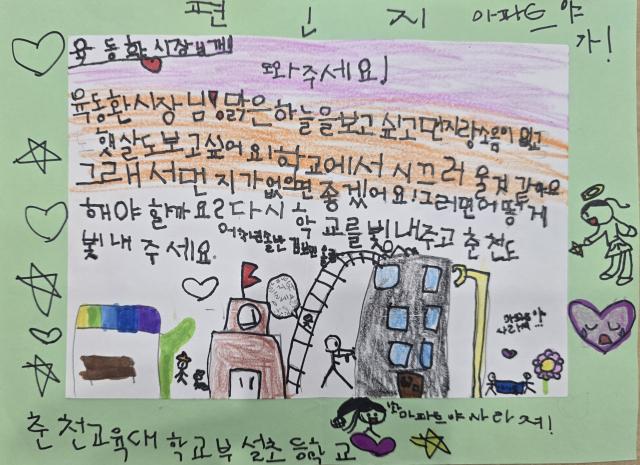 편 지
아파트야
가!
육동한시장님께!
도와주세요!
육동한시장님! 맑은하늘을보고싶고먼지랑소음이 없고
햇살도보고싶어요!학교에서 시끄러 울것 같아요
그래서먼지가없으면 좋겠어요!그러면어떻게
해야 할까요?다시 학교를빛내주고 춘천도
빛내 주세요.
아파트야 사라져!
춘천교육대 학교부설초등학교